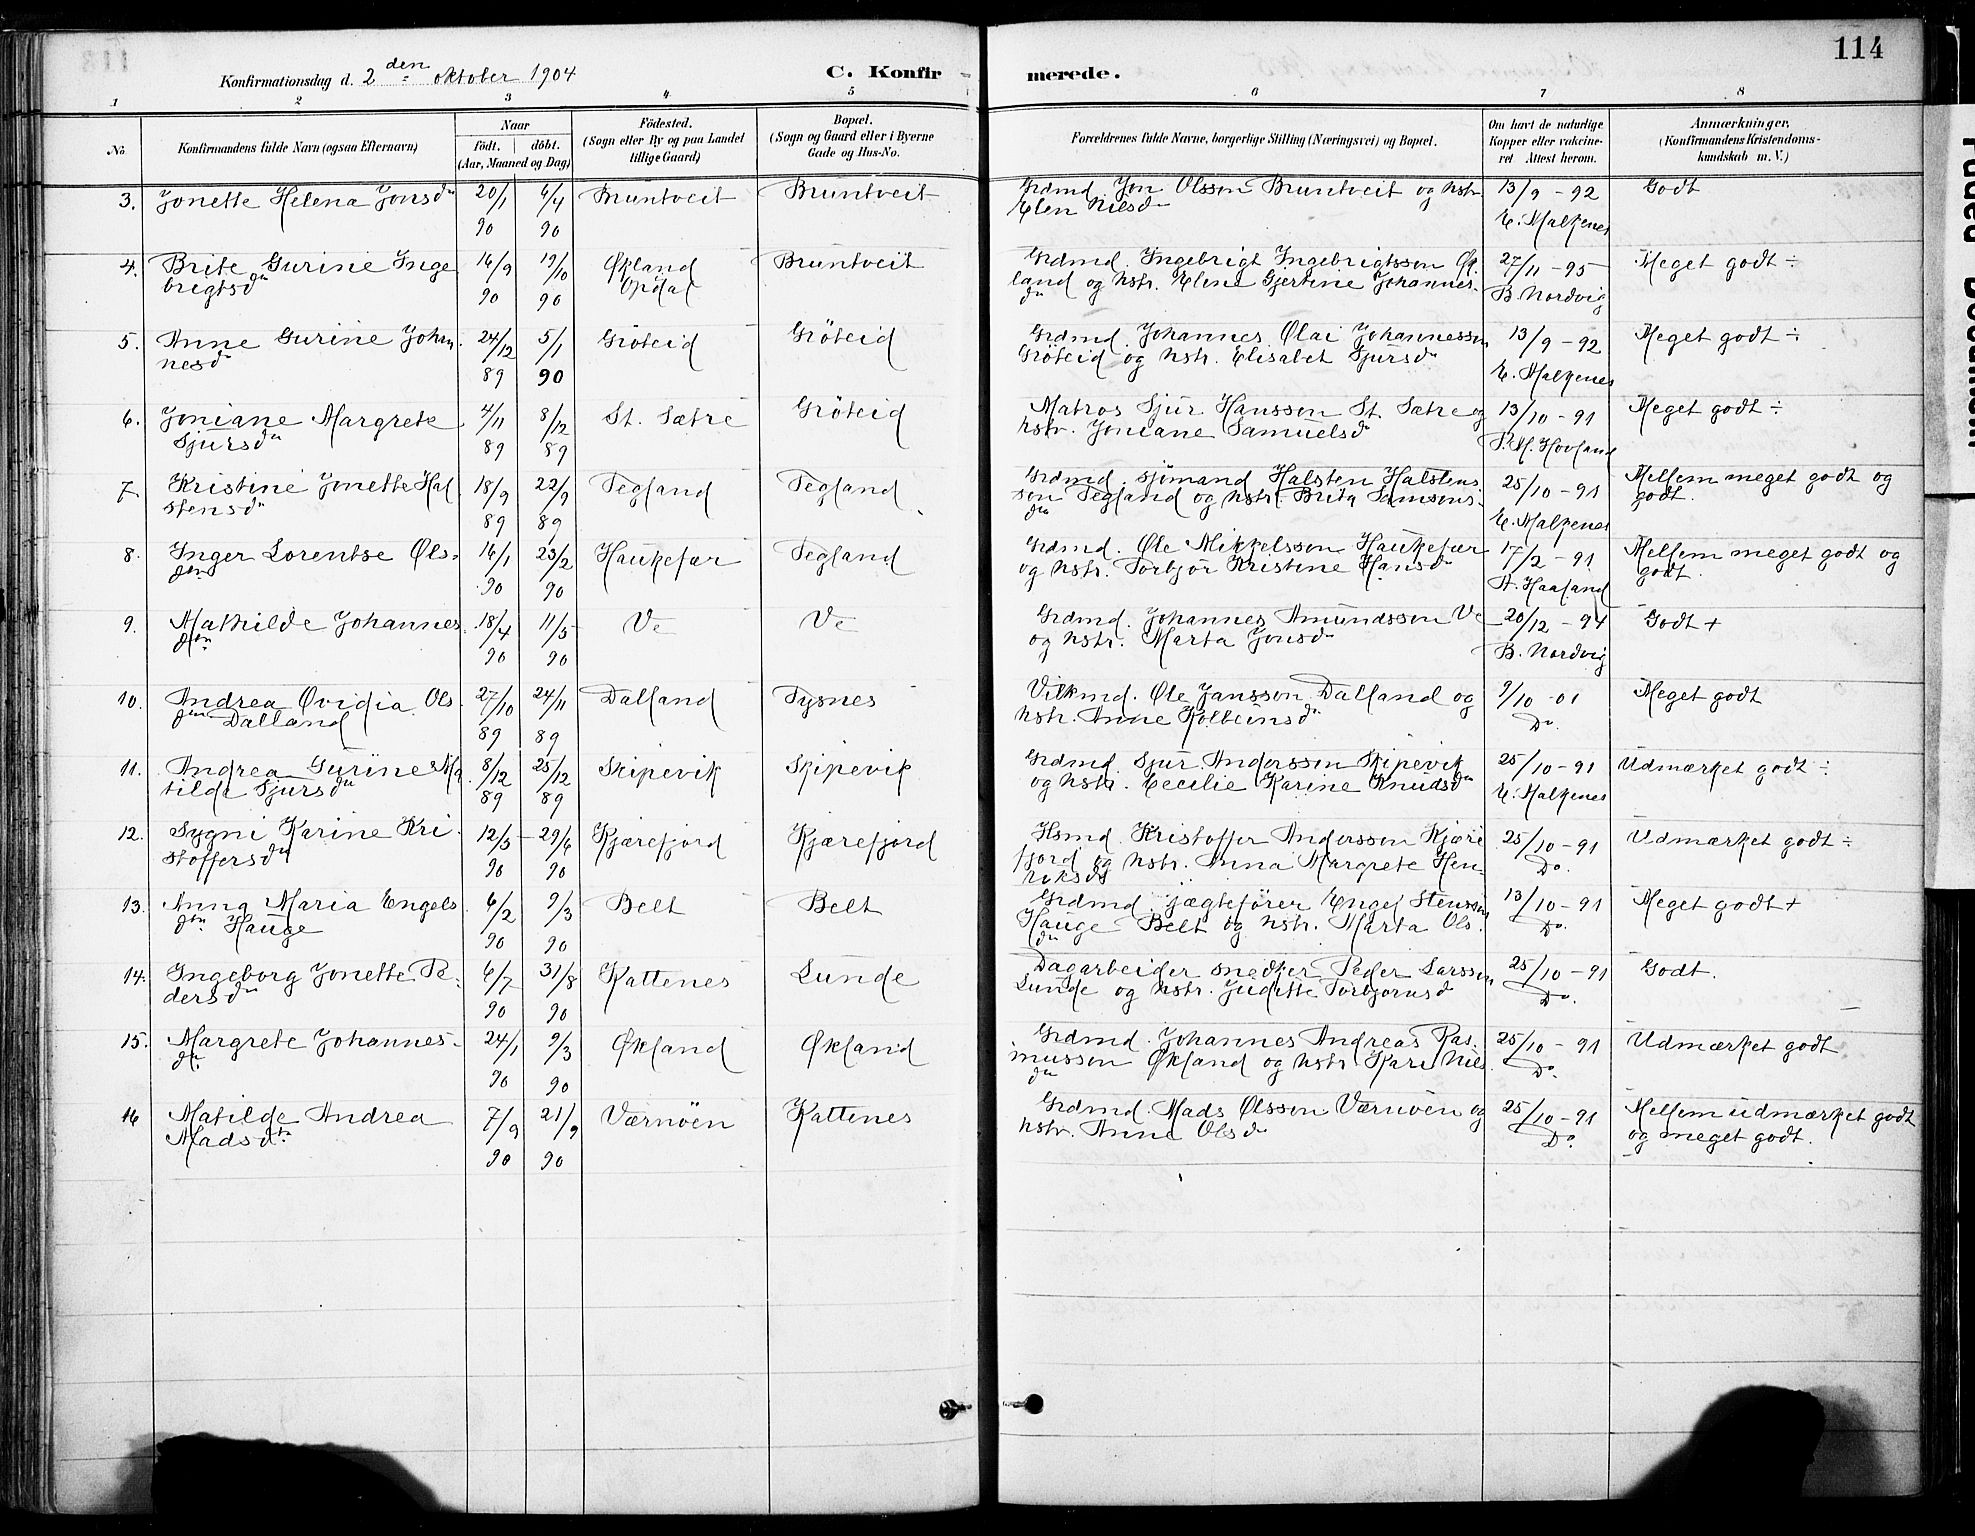 114
Konfirmationsdag d. 2den oktober 1904
C. Konfirmerede.
1 2 3 4 5 6 7 8
No
Konfirmandens fulde Navn (ogsaa Efternavn)
Naar
födt. döbt.
(Aar, Maaned og Dag)
Födested.
(Sogn eller By og paa Landet
tillige Gaard)
Bopæl.
(Sogn og Gaard eller i Byerne
Gade og Hus-No.
Forældrenes fulde Navne, borgerlige Stilling (Næringsvei) og Bopæl.
Om havt de naturlige
Kopper eller vakcine-
ret Attest herom.
Anmærkninger.
(Konfirmandens Kristendoms-
kundskab m. V.)
3. Jonette Helena Jonsdtr 20/1 6/4 Bruntveit Bruntveit Grdmd. Jon Olsson Bruntveit og hstr. 13/9 - 92 Godt
90 90 Elen Nilsdtr E. Malkenes
4. Brite Gurine Inge 16/9 19/10 Økland Bruntveit Grdmd. Ingebrigt Ingebrigtsson Øk. 27/11 - 95 Meget godt ÷
brigtsdtr 90 90 Opdal land og hstr. Elene Gjertine Johannes- B. Nordvig
dtr
5. Anne Gurine Johan 24/12 5/1 Gröteid Gröteid Grdmd. Johannes Olai Johannesson 13/9 - 92 Meget godt ÷
nesdtr 89 90 Gröteid og hstr. Elisabet Sjursdtr E. Malkenes
6. Joniane Margrete 4/11 8/12 St. Sætre Gröteid Matros Sjur Hansson St. Sætre og 13/10 - 91 Meget godt ÷
Sjursdtr 89 89 hstr. Joniane Samuelsdtr P. M. Hovland
7. Kristine Jonette Hal 18/9 22/9 Tegland Tegland Grdmd. sjömand Halsten Halstens 25/10 - 91 Mellem meget godt og
stensdtr 89 89 son Tegland og hstr. Brita Samsons- E. Malkenes godt.
dtr
8. Inger Lorentse Ols- 16/1 23/2 Haukefær Tegland Grdmd. Ole Mikkelsson Haukefær 17/2 - 91 Mellem meget godt og
dtr 90 90 og hstr. Torbjör Kristine Hansdtr A. Haaland godt.
9. Mathilde Johannes 18/4 11/5 Ve Ve Grdmd. Johannes Amundsson Ve 20/12 - 94 Godt +
dtr 90 90 og hstr. Marta Jonsdtr B. Nordvig
10. Andrea Ovidia Ols- 27/10 24/11 Dalland Tysnes Vilkmd. Ole Jansson Dalland og 9/10 - 01 Meget godt
dtr Dalland 89 89 hstr. Anne Kolbeinsdtr Do
11. Andrea Gurine Ma 8/12 25/12 Skipevik Skipevik Grdmd Sjur Andersson Skipevik 25/10 - 91 Udmærket godt ÷
tilde Sjursdtr 89 89 og hstr. Cecilie Karine Knudsdtr E. Malkenes
12. Sygni Karine Kri 12/5 29/6 Kjærefjord Kjærefjord Hsmd. Kristoffer Andersson Kjære 25/10 - 91 Udmærket godt ÷
stoffersdtr 90 90 fjord og hstr. Anna Margrete Hen- Do.
riksdtr
13. Anna Maria Engels 6/2 9/3 Belt Belt Grdmd jægtefører Engel Stensson 13/10 - 91 Meget godt +
dtr Hauge 90 90 Hauge Belt og hstr. Marta Ols. Do.
dtr
14. Ingeborg Jonette Pe- 6/7 31/8 Kattenes Lunde Dagarbeider snedker Peder Larsson 25/10 - 91 Godt.
dersdtr 90 90 Lunde og hstr. Juditte Torbjornsdtr Do.
15. Margrete Johannes- 24/1 9/3 Økland Økland Grdmd. Johannes Andreas Ras- 25/10 - 91 Udmærket godt
dtr 90 90 musson Økland og hstr. Kari Nils Do.
dtr
16 Matilde Andrea 7/9 21/9 Værnöen Kattenes Grdmd. Mads Olsson Værnöen og 25/10 - 91 Mellem udmærket godt
Madsdtr 90 90 hstr. Anna Olsdtr Do. og meget godt.